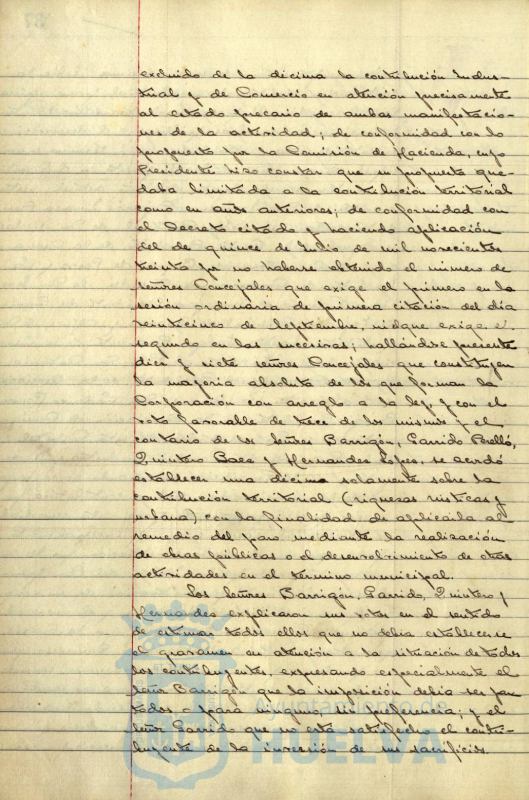 excluido de la décima la contribución Indus-
trial y de Comercio en atención precisamente
al estado precario de ambas manifestacio-
nes de la actividad; de conformidad con lo
propuesto por la Comisión de Hacienda, cuyo
Presidente hizo constar que su propuesta que-
daba limitada a la contribución territorial
como en años anteriores; de conformidad con
el Decreto citado y haciendo aplicación
del de quince de Julio de mil novecientos
treinta por no haberse obtenido el número de
señores Concejales que exige el primero en la
sesión ordinaria de primera citación del día
veinticinco de Septiembre, ni que exige el
segundo en las sucesivas; hallándose presente
diez y siete señores Concejales que constituyen
la mayoría absoluta de los que forman la
Corporación con arreglo a la ley, y con el
voto favorable de trece de los mismos y el
contrario de los señores Barrigón, Garrido Perelló,
Quintero Baez y Hernandez López, se acordó
establecer una décima solamente sobre la
contribución territorial (riquezas rústicas y
urbana) con la finalidad de aplicarla al
remedio del paro mediante la realización
de obras públicas o el desenvolvimiento de otras
actividades en el término municipal.
Los señores Barrigón, Garrido, Quintero y
Hernandez explicaron sus votos en el sentido
de estimar todos ellos que no debía establecerse
el gravamen en atención a la situación de todos
los contribuyentes, expresando especialmente el
señor Barrigón que la imposición debía ser para
todos o para ninguno sin preferencia; y el
señor Garrido que no está satisfecho el contri-
buyente de la inversión de sus sacrificios.
Ayuntamiento de
HUELVA